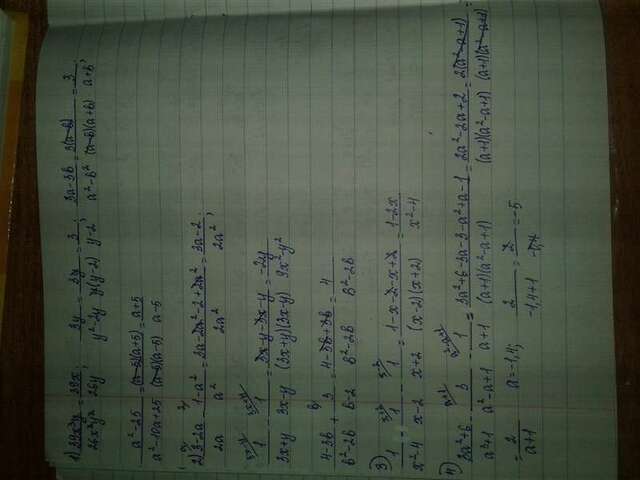 1) 39x³y/26x²y² = 39x/26y; 3y/y²-2y = 3y/y(y-2) = 3/y-2; 3a-3b/a²-b² = 3(a-b)/(a-b)(a+b) = 3/a+b;
a²-25/a²-10a+25 = (a-5)(a+5)/(a-5)(a-5) = a+5/a-5
2) 3-2a/2a - 1-a²/a² = 3a-2a²-2+2a²/2a² = 3a-2/2a²;
1/3x+y - 1/3x-y = 3x-y-3x-y/(3x+y)(3x-y) = -2y/9x²-y²
4-3b/b²-2b + 3/b-2 = 4-3b+3b/b²-2b = 4/b²-2b
3) 1/x²-4 - 1/x-2 + 1/x+2 = 1-x-2-x+2/(x-2)(x+2) = 1-2x/x²-4
4) 3a²+6/a³+1 - 3/a²-a+1 - 1/a+1 = 3a²+6-3a-3-a²+a-1/(a+1)(a²-a+1) = 2a²-2a+2/(a+1)(a²-a+1) = 2(a²-a+1)/(a+1)(a²-a+1) =
= 2/a+1 a=-1,4; 2/-1,4+1 = 2/-0,4 = -5